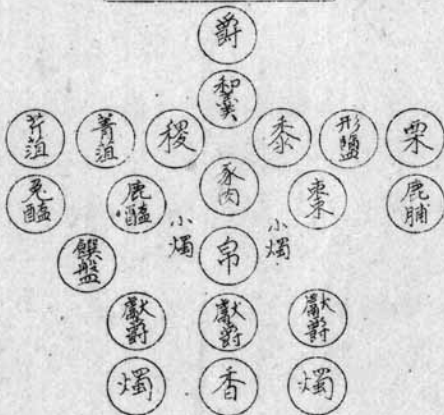 爵
和羹
芹沮 菁沮 稷 黍 形鹽 栗
兔醢 鹿醢 豕肉 棗 鹿脯
小燭 小燭
饌盤 帛
獻爵 獻爵 獻爵
燭 香 燭